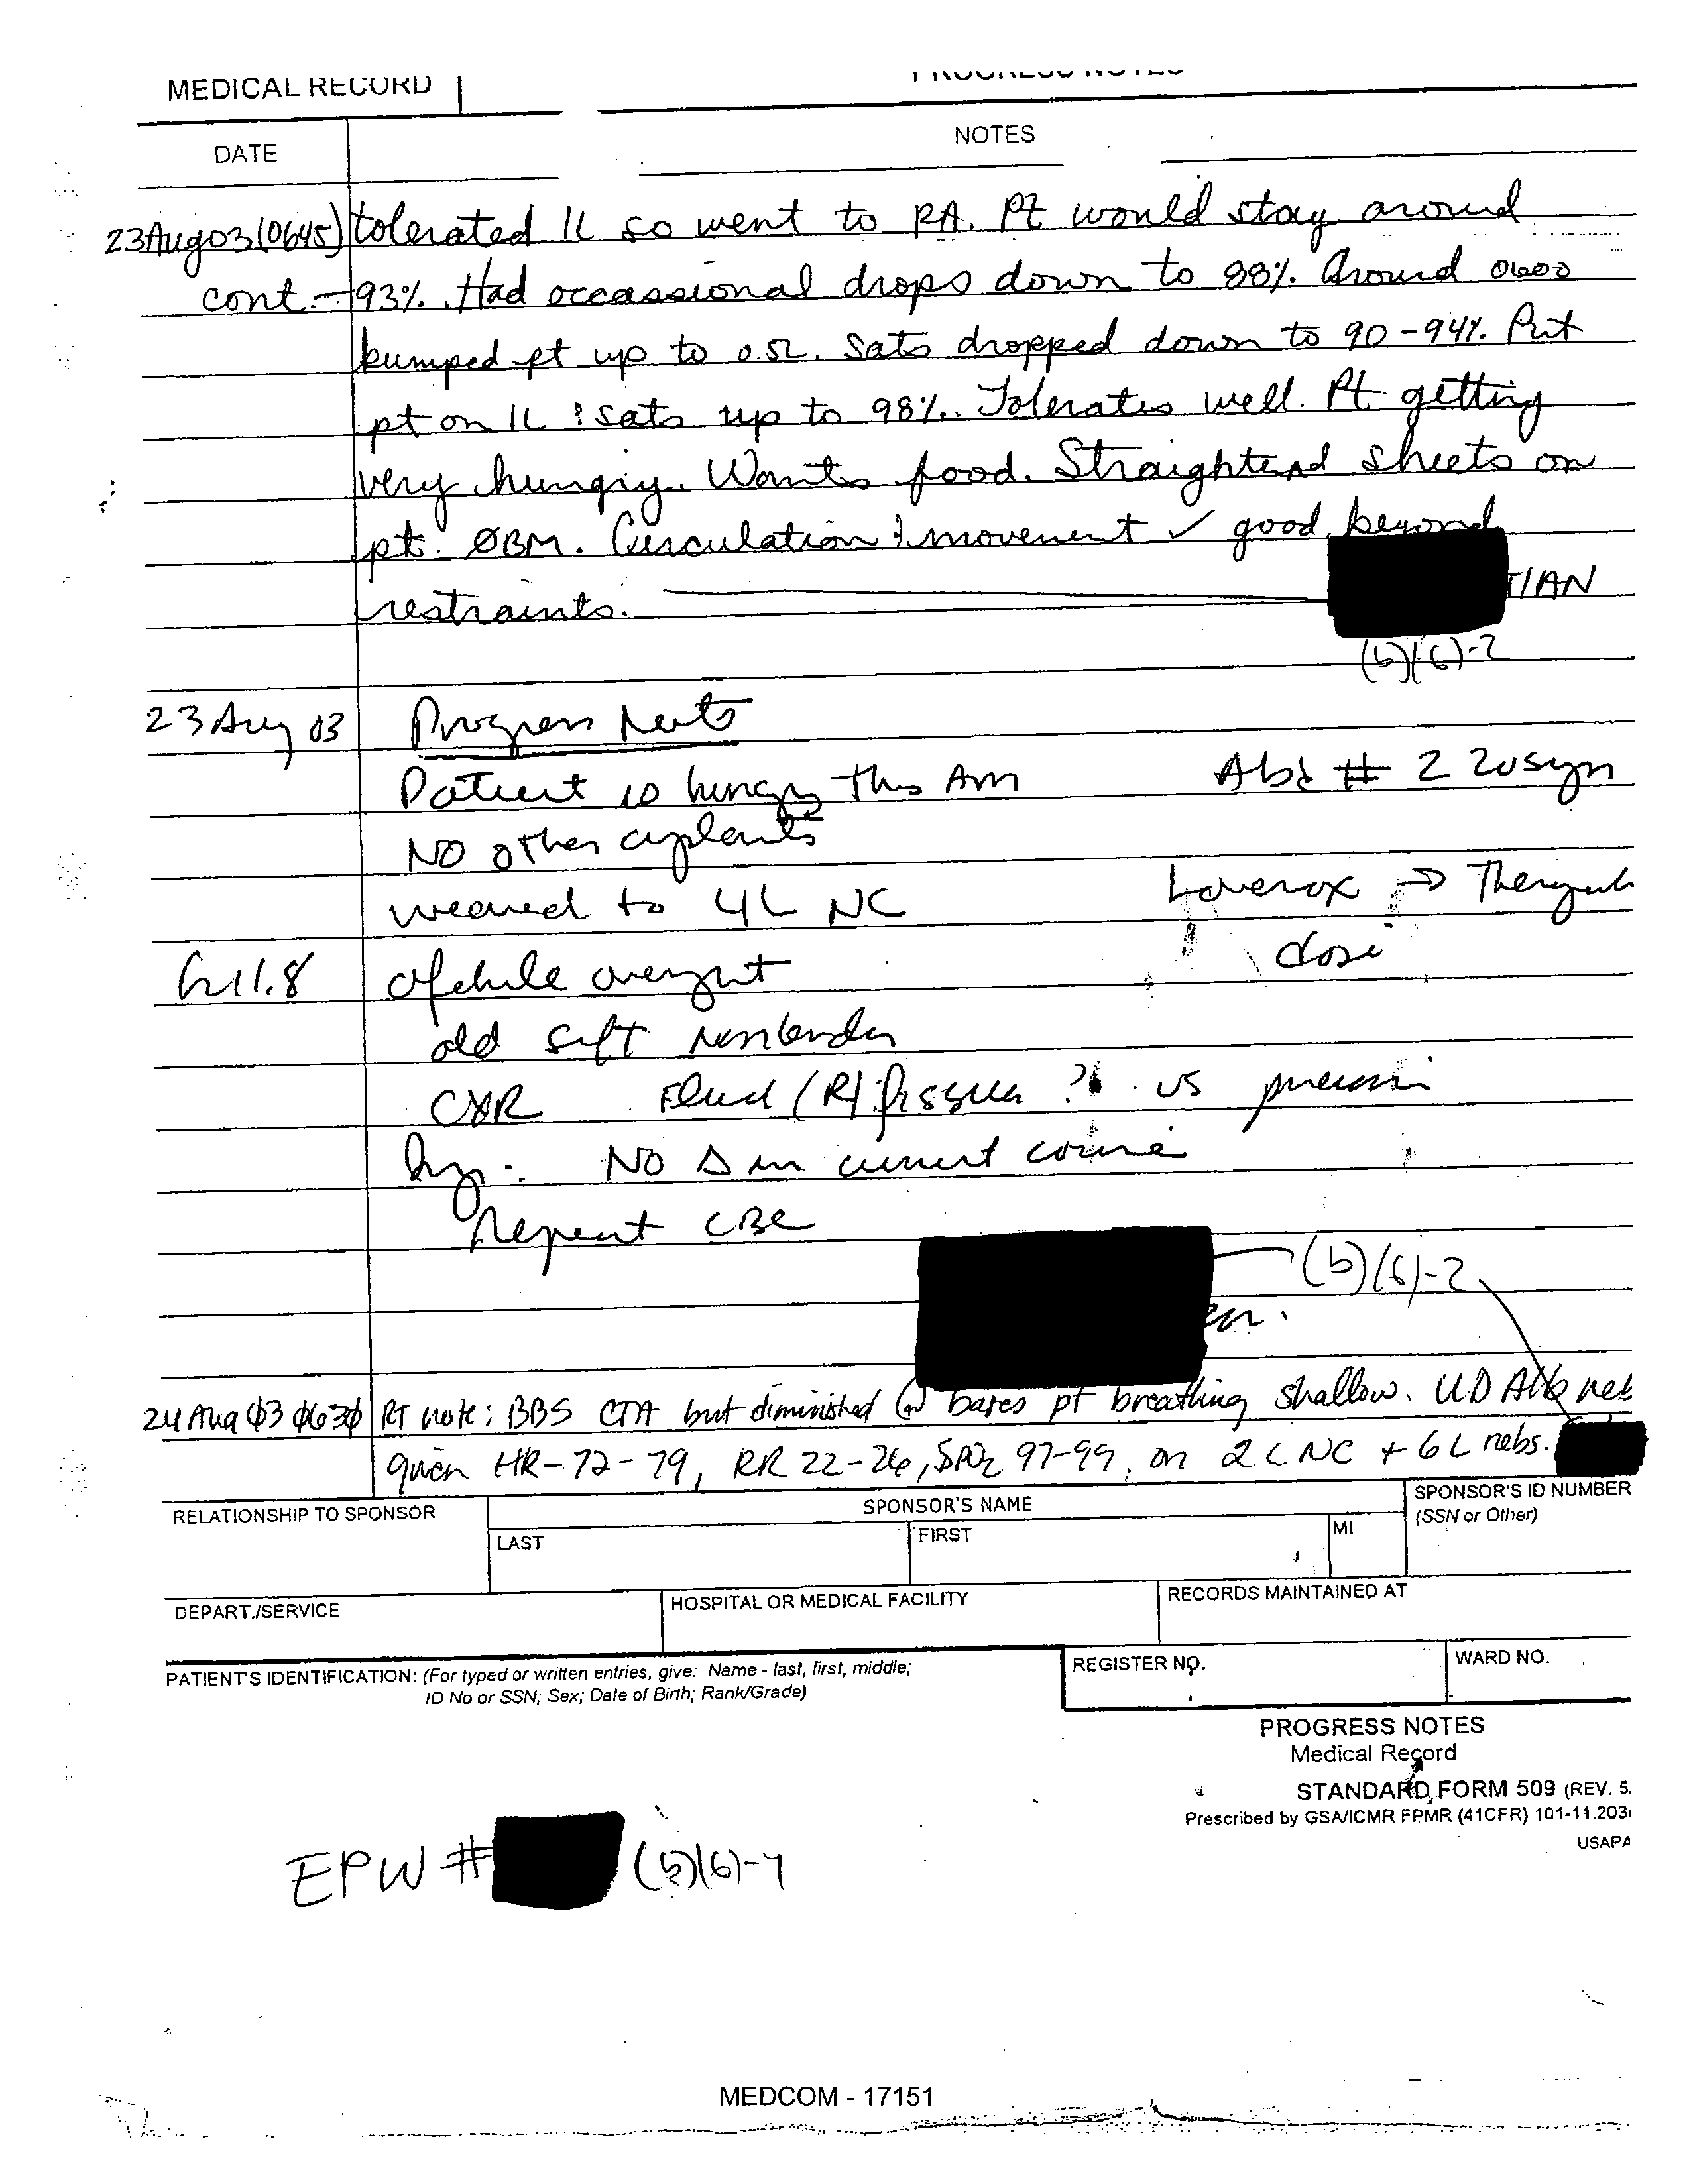 MEDICAL RECORD
PROGRESS NOTES
DATE
NOTES
23Aug03(0645) tolerated 1L so went to RA. Pt would stay around
cont. - 93%. Had occassional drops down to 88%. Around 0600
bumped pt up to 0.5L. Sats dropped down to 90-94%. Put
pt on 1L & sats up to 98%. Tolerates well. Pt getting
very hungry. Wants food. Straightend sheets on
pt. ØBM. Circulation & movement ✓ good beyond
restraints.
T/AN
(b)(6)-2
23 Aug 03 Progress
Patient is hungry this AM Abx # 2 Zosyn
NO other
weaned to 4L NC Lovenox →
11.8 dose
soft
CXR Fluid (R) fissure ? vs
NO Δ in current course
Repeat CBC
(b)(6)-2
24 Aug 03 0630 RT note: BBS CTA but diminished @ bases pt breathing shallow. UD Alb neb
given HR-72-79, RR 22-26, SPO2 97-99, on 2L NC + 6L nebs.
RELATIONSHIP TO SPONSOR
SPONSOR'S NAME
LAST
FIRST
MI
SPONSOR'S ID NUMBER
(SSN or Other)
DEPART./SERVICE
HOSPITAL OR MEDICAL FACILITY
RECORDS MAINTAINED AT
PATIENT'S IDENTIFICATION: (For typed or written entries, give: Name - last, first, middle;
ID No or SSN; Sex; Date of Birth; Rank/Grade)
REGISTER NO.
WARD NO.
PROGRESS NOTES
Medical Record
STANDARD FORM 509 (REV. 5.
Prescribed by GSA/ICMR FPMR (41CFR) 101-11.203
USAPA
EPW # (b)(6)-4
MEDCOM - 17151